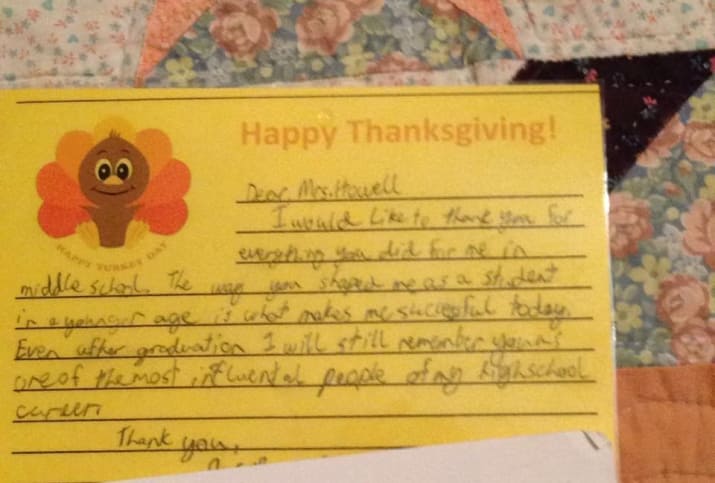 Happy Thanksgiving!
HAPPY TURKEY DAY
Dear Mrs. Howell
I would like to thank you for
everything you did for me in
middle school. The way you shaped me as a student
in a younger age is what makes me succesful today.
Even after graduation I will still remember you as
one of the most influental people of my highschool
career.
Thank you,